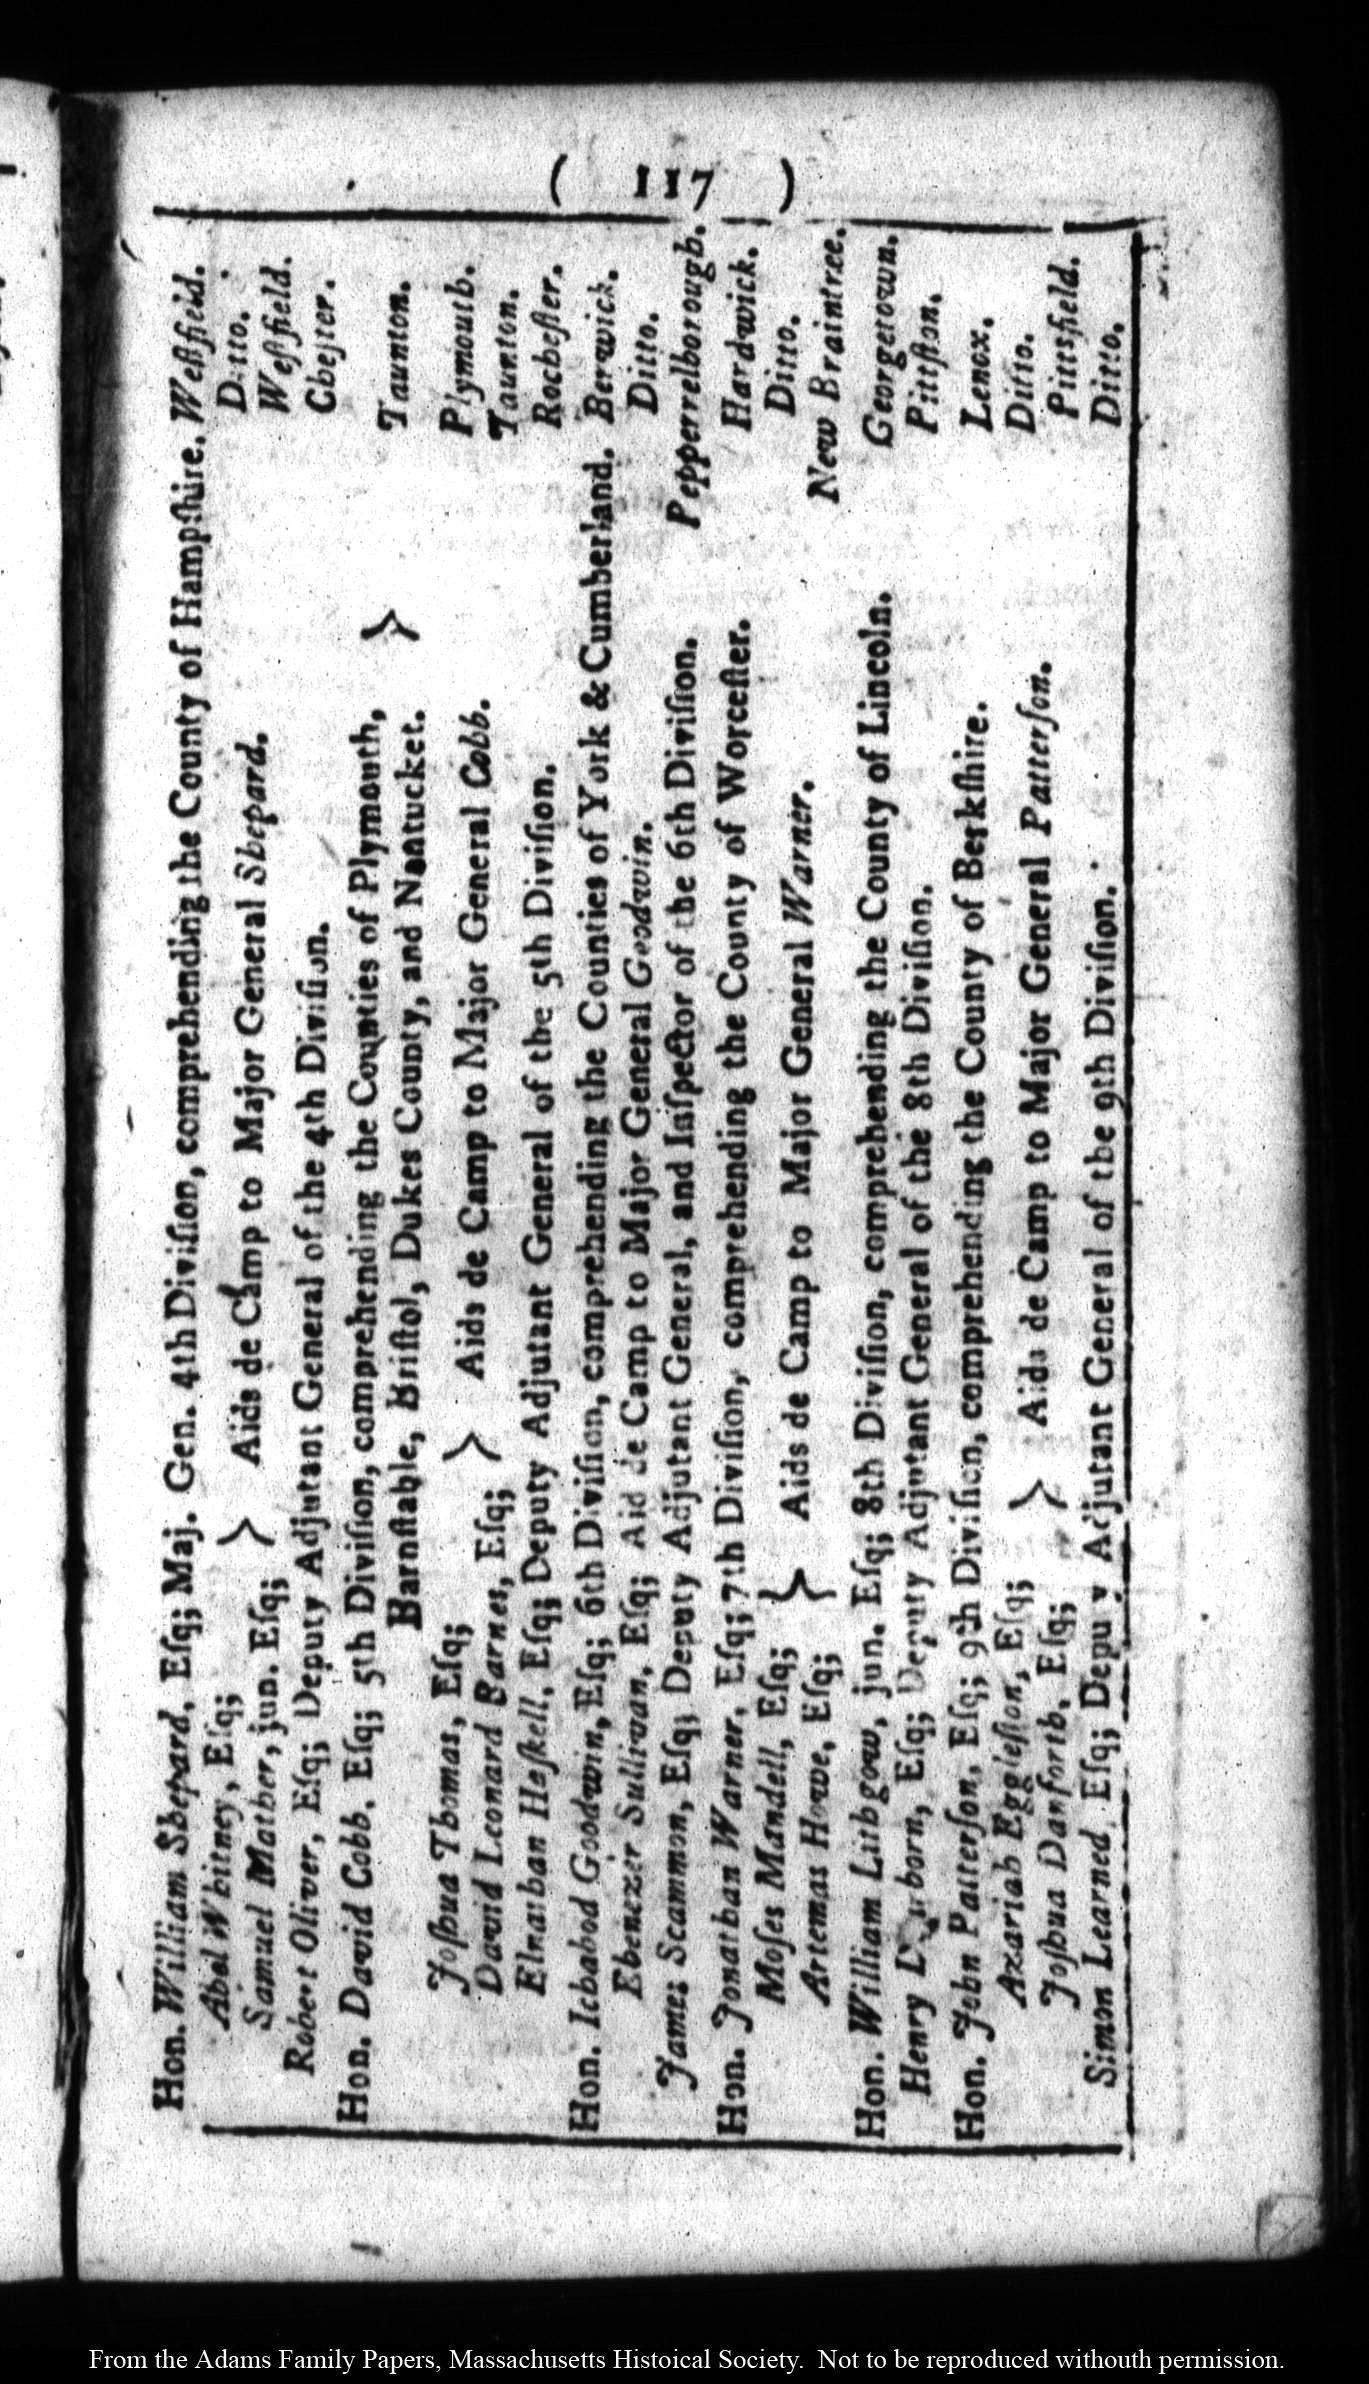 ( 117 )
Hon. William Shepard, Eſq; Maj. Gen. 4th Diviſion, comprehending the County of Hampſhire. Weſtfield.
Abel Whitney, Eſq; Ditto.
Samuel Mather, jun. Eſq; } Aids de Camp to Major General Shepard. Weſtfield.
Robert Oliver, Eſq; Deputy Adjutant General of the 4th Diviſion. Cheſter.
Hon. David Cobb, Eſq; 5th Diviſion, comprehending the Counties of Plymouth,
Barnſtable, Briſtol, Dukes County, and Nantucket. } Taunton.
Joſhua Thomas, Eſq; Plymouth.
David Leonard Barnes, Eſq; } Aids de Camp to Major General Cobb. Taunton.
Elnathan Haſkell, Eſq; Deputy Adjutant General of the 5th Diviſion. Rocheſter.
Hon. Ichabod Goodwin, Eſq; 6th Diviſion, comprehending the Counties of York & Cumberland. Berwick.
Ebenezer Sullivan, Eſq; Aid de Camp to Major General Goodwin. Ditto.
James Scammon, Eſq; Deputy Adjutant General, and Inſpector of the 6th Diviſion. Pepperrelborough.
Hon. Jonathan Warner, Eſq; 7th Diviſion, comprehending the County of Worceſter. Hardwick.
Moſes Mandell, Eſq; Ditto.
Artemas Howe, Eſq; } Aids de Camp to Major General Warner. New Braintree.
Hon. William Lithgow, jun. Eſq; 8th Diviſion, comprehending the County of Lincoln. Georgetown.
Henry Dearborn, Eſq; Deputy Adjutant General of the 8th Diviſion. Pittſton.
Hon. John Patterſon, Eſq; 9th Diviſion, comprehending the County of Berkſhire. Lenox.
Azariah Eggleſton, Eſq; Ditto.
Joſhua Danforth, Eſq; } Aids de Camp to Major General Patterſon. Pittsfield.
Simon Learned, Eſq; Deputy Adjutant General of the 9th Diviſion. Ditto.
From the Adams Family Papers, Massachusetts Histoical Society. Not to be reproduced withouth permission.